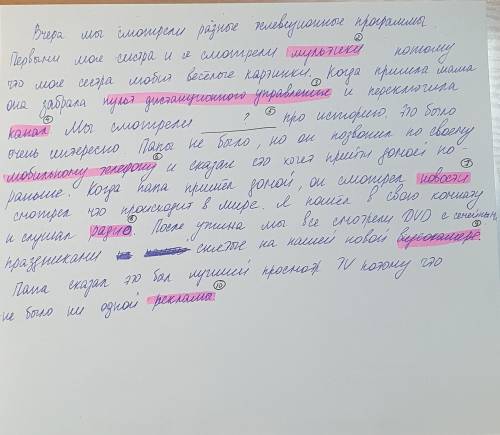 Вчера мы смотрели разные телевизионные программы.
Первыми мое сестра и я смотрели мультики ② потому
что мое сестра любит весёлые картинки. Когда пришла мама
она забрала пульт дистанционного управления ③ и переключила
канал ④ Мы смотрели ___?___ ⑤ про историю. Это было
очень интересно Папы не было, но он позвонил по своему
мобильному телефону ⑥ и сказал что хочет прийти домой по-
раньше. Когда папа пришёл домой, он смотрел новости ⑦
смотрел что происходит в мире. Я пошёл в свою комнату
и слушал радио ⑧. После ужина мы все смотрели DVD с семейными
праздниками снятые на нашей новой видеокамере ⑨.
Папа сказал это был лучший просмотр TV потому что
не было ни одной рекламы ⑩